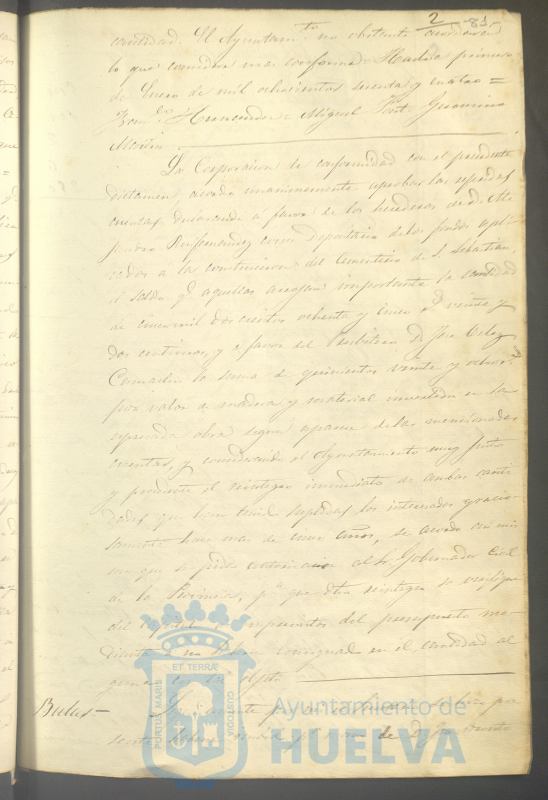 2 81
cantidad. El Ayuntamto no obstante acordará
lo que considere mas conforme. Huelva primero
de Enero de mil ochocientos sesenta y cuatro =
Hernandez = Miguel Port Gerónimo
Martin
La Corporacion de conformidad con el precedente
dictamen, acordó unanimemente aprobar las referidas
cuentas, declarando a favor de los herederos de D. Ale
jandro como Depositario de los fondos apli
cados a la construccion del Cementerio de S. Sebastian,
el saldo qe aquellas arrojan importante la cantidad
de cinco mil dos cientos ochenta y cinco rs veinte y
dos centimos, y a favor del Presbitero D. José
la suma de quinientos veinte y ocho rs
por valor de madera y material invertido en la
espresada obra segun aparece de las mencionadas
cuentas, y considerando el Ayuntamiento muy justo
y procedente el reintegro inmediato de ambas canti
dades que han tenido suplidas los interesados gracio-
samente hace mas de once años, se acordó asi mis
mo que se pida autorizacion al Sr. Gobernador Civil
de la Provincia, pa que dho reintegro se verifique
del capitulo de imprevistos del presupuesto me
diante a no haber consignada en él cantidad al
guna con tal objeto.
Bulas =
de D.
PORTUS MARIS ET TERRÆ CUSTODIA
Ayuntamiento de
HUELVA